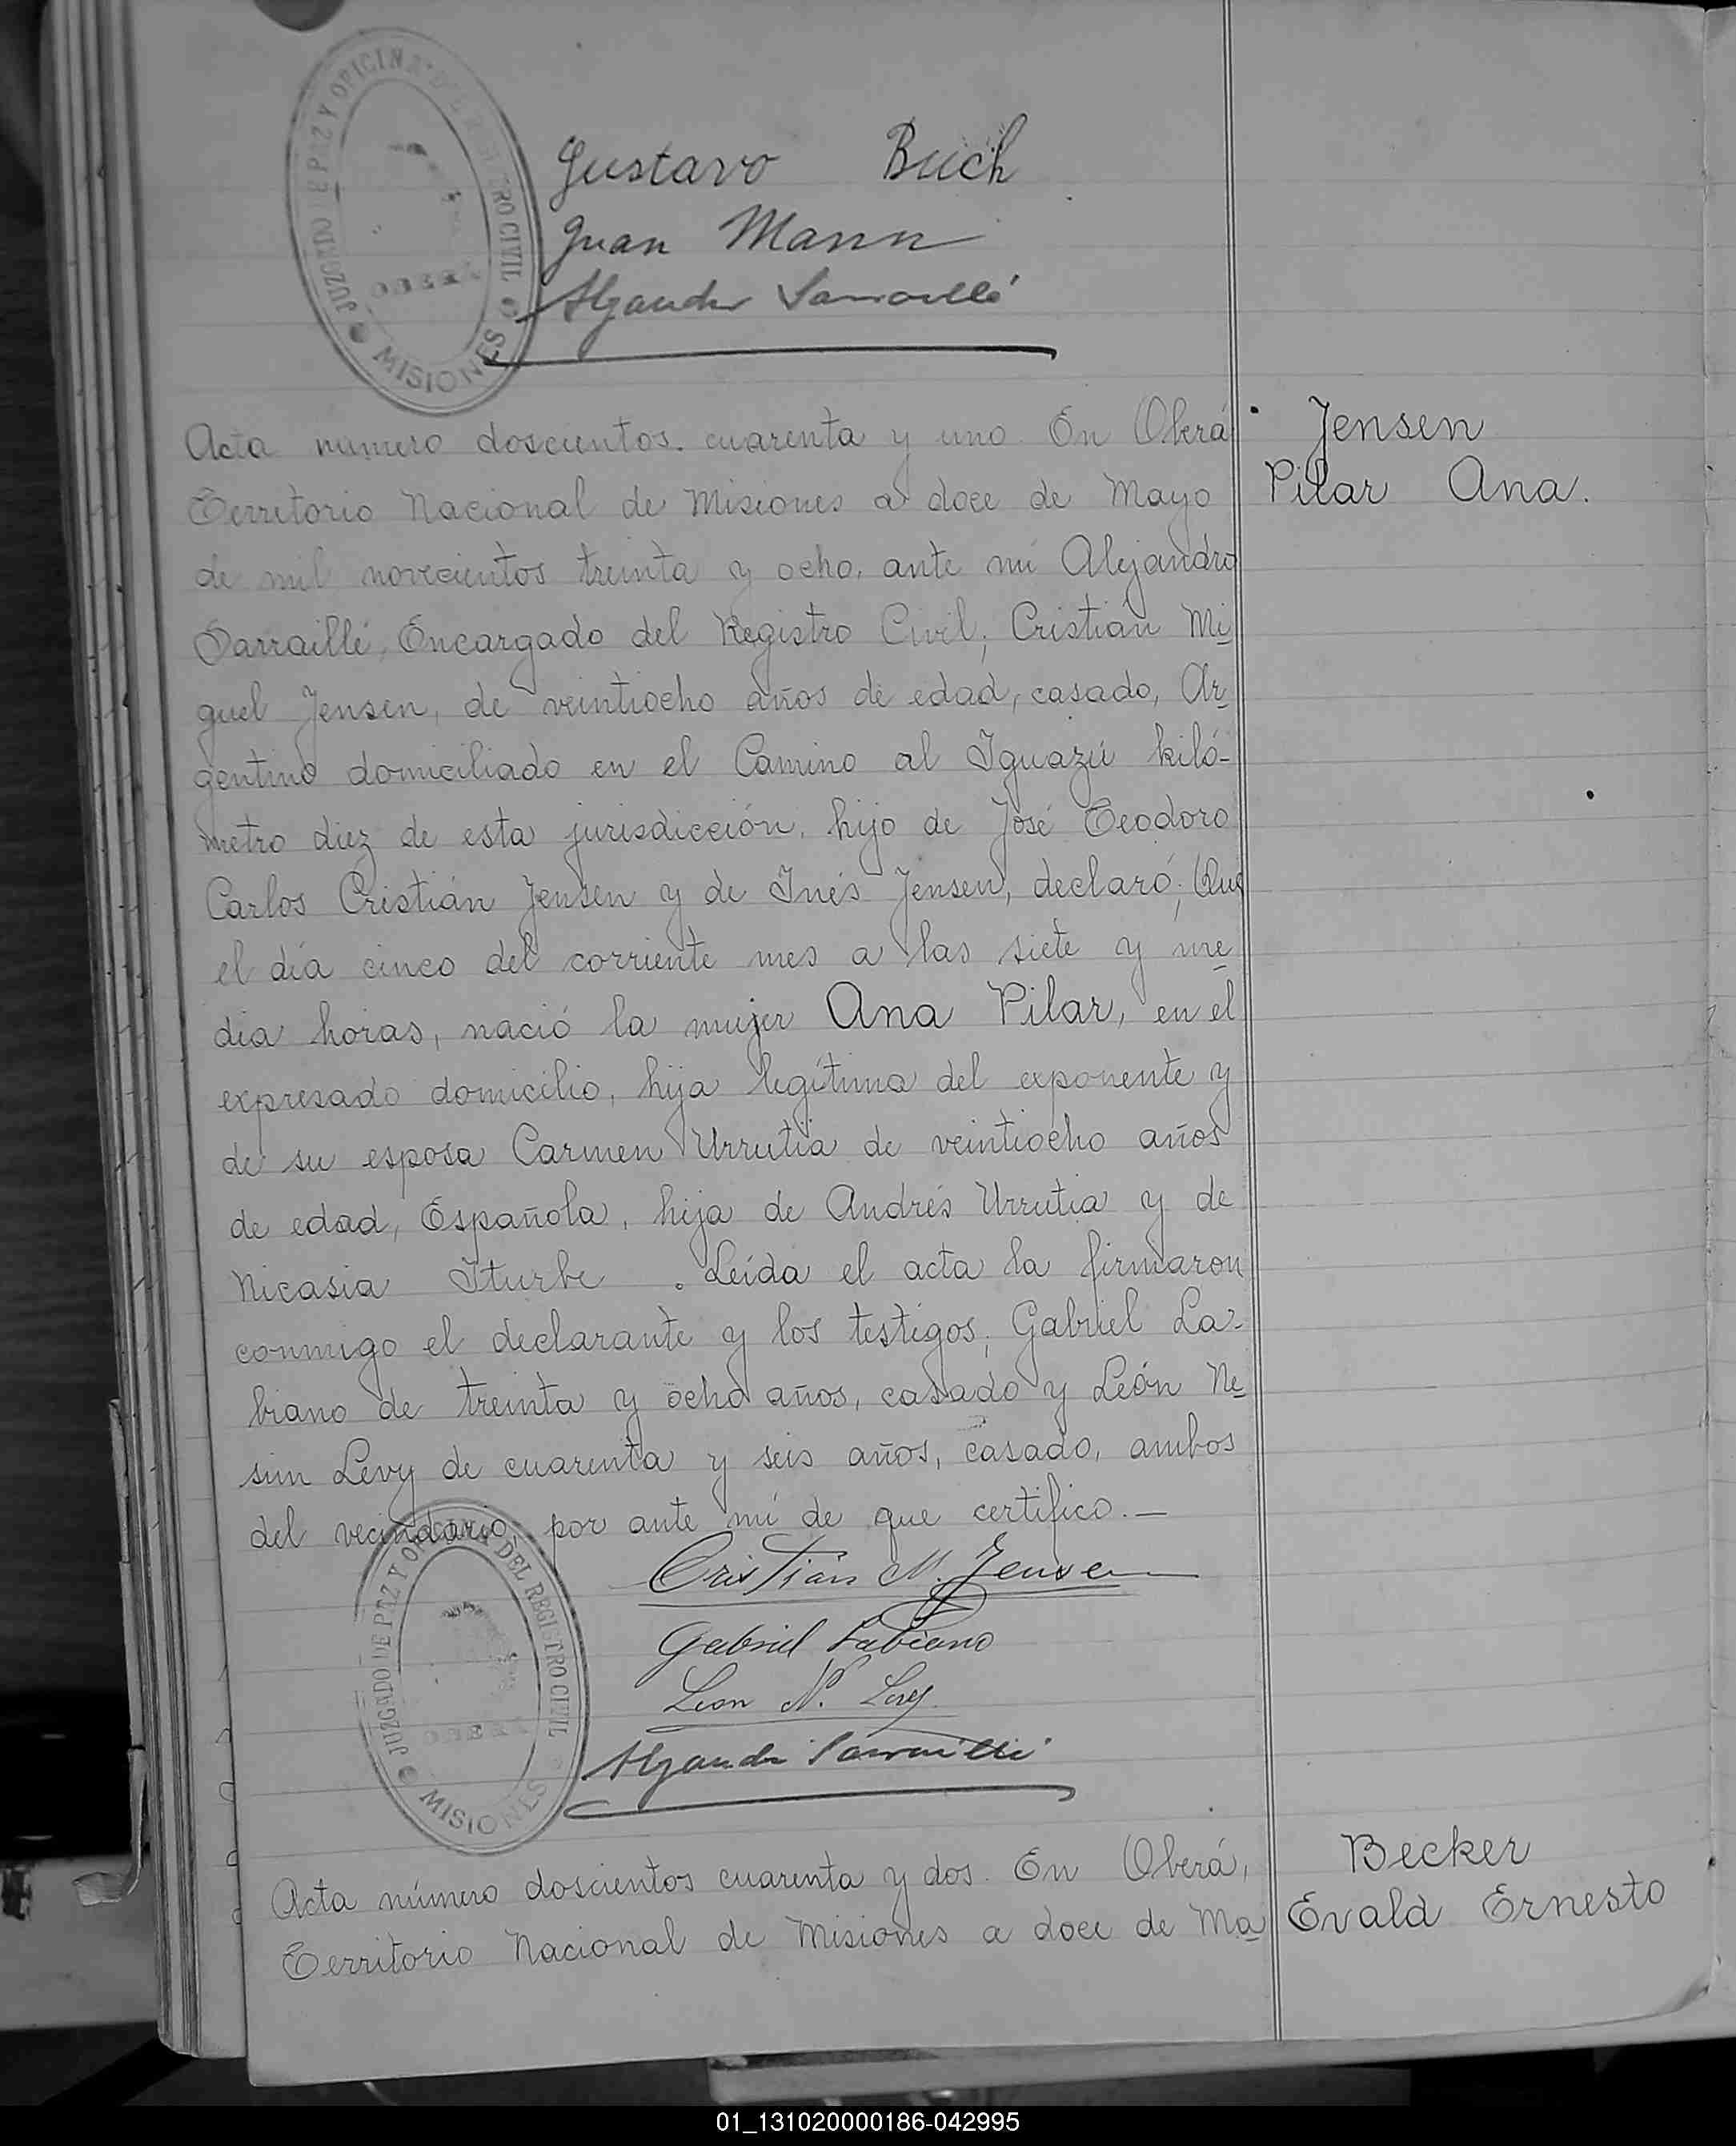 JUZGADO DE PAZ Y OFICINA DEL REGISTRO CIVIL
OBERA
MISIONES
Gustavo Buch
Juan Mann
Alejandro Sarraillé
Acta numero doscientos cuarenta y uno. En Oberá
Territorio Nacional de Misiones a doce de Mayo
de mil novecientos treinta y ocho, ante mí Alejandro
Sarraillé, Encargado del Registro Civil; Cristián Mi
guel Jensen, de veintiocho años de edad, casado, Ar
gentino domiciliado en el Camino al Iguazú kiló-
metro diez de esta jurisdicción, hijo de José Teodoro
Carlos Cristián Jensen y de Inés Jensen, declaró; Que
el día cinco del corriente mes a las siete y me
dia horas, nació la mujer Ana Pilar, en el
expresado domicilio, hija legítima del exponente y
de su esposa Carmen Urrutia de veintiocho años
de edad, Española, hija de Andrés Urrutia y de
Nicasia Iturbe . Leída el acta la firmaron
conmigo el declarante y los testigos; Gabriel La-
biano de treinta y ocho años, casado y León Ne
sim Levy de cuarenta y seis años, casado, ambos
del vecindario, por ante mí de que certifico.—
Jensen
Pilar Ana.
Cristián M. Jensen
Gabriel Labiano
Leon N. Levy
Alejandro Sarraillé
JUZGADO DE PAZ Y OFICINA DEL REGISTRO CIVIL
OBERA
MISIONES
Acta número doscientos cuarenta y dos. En Oberá,
Territorio Nacional de Misiones a doce de Ma
Becker
Evald Ernesto
01_131020000186-042995